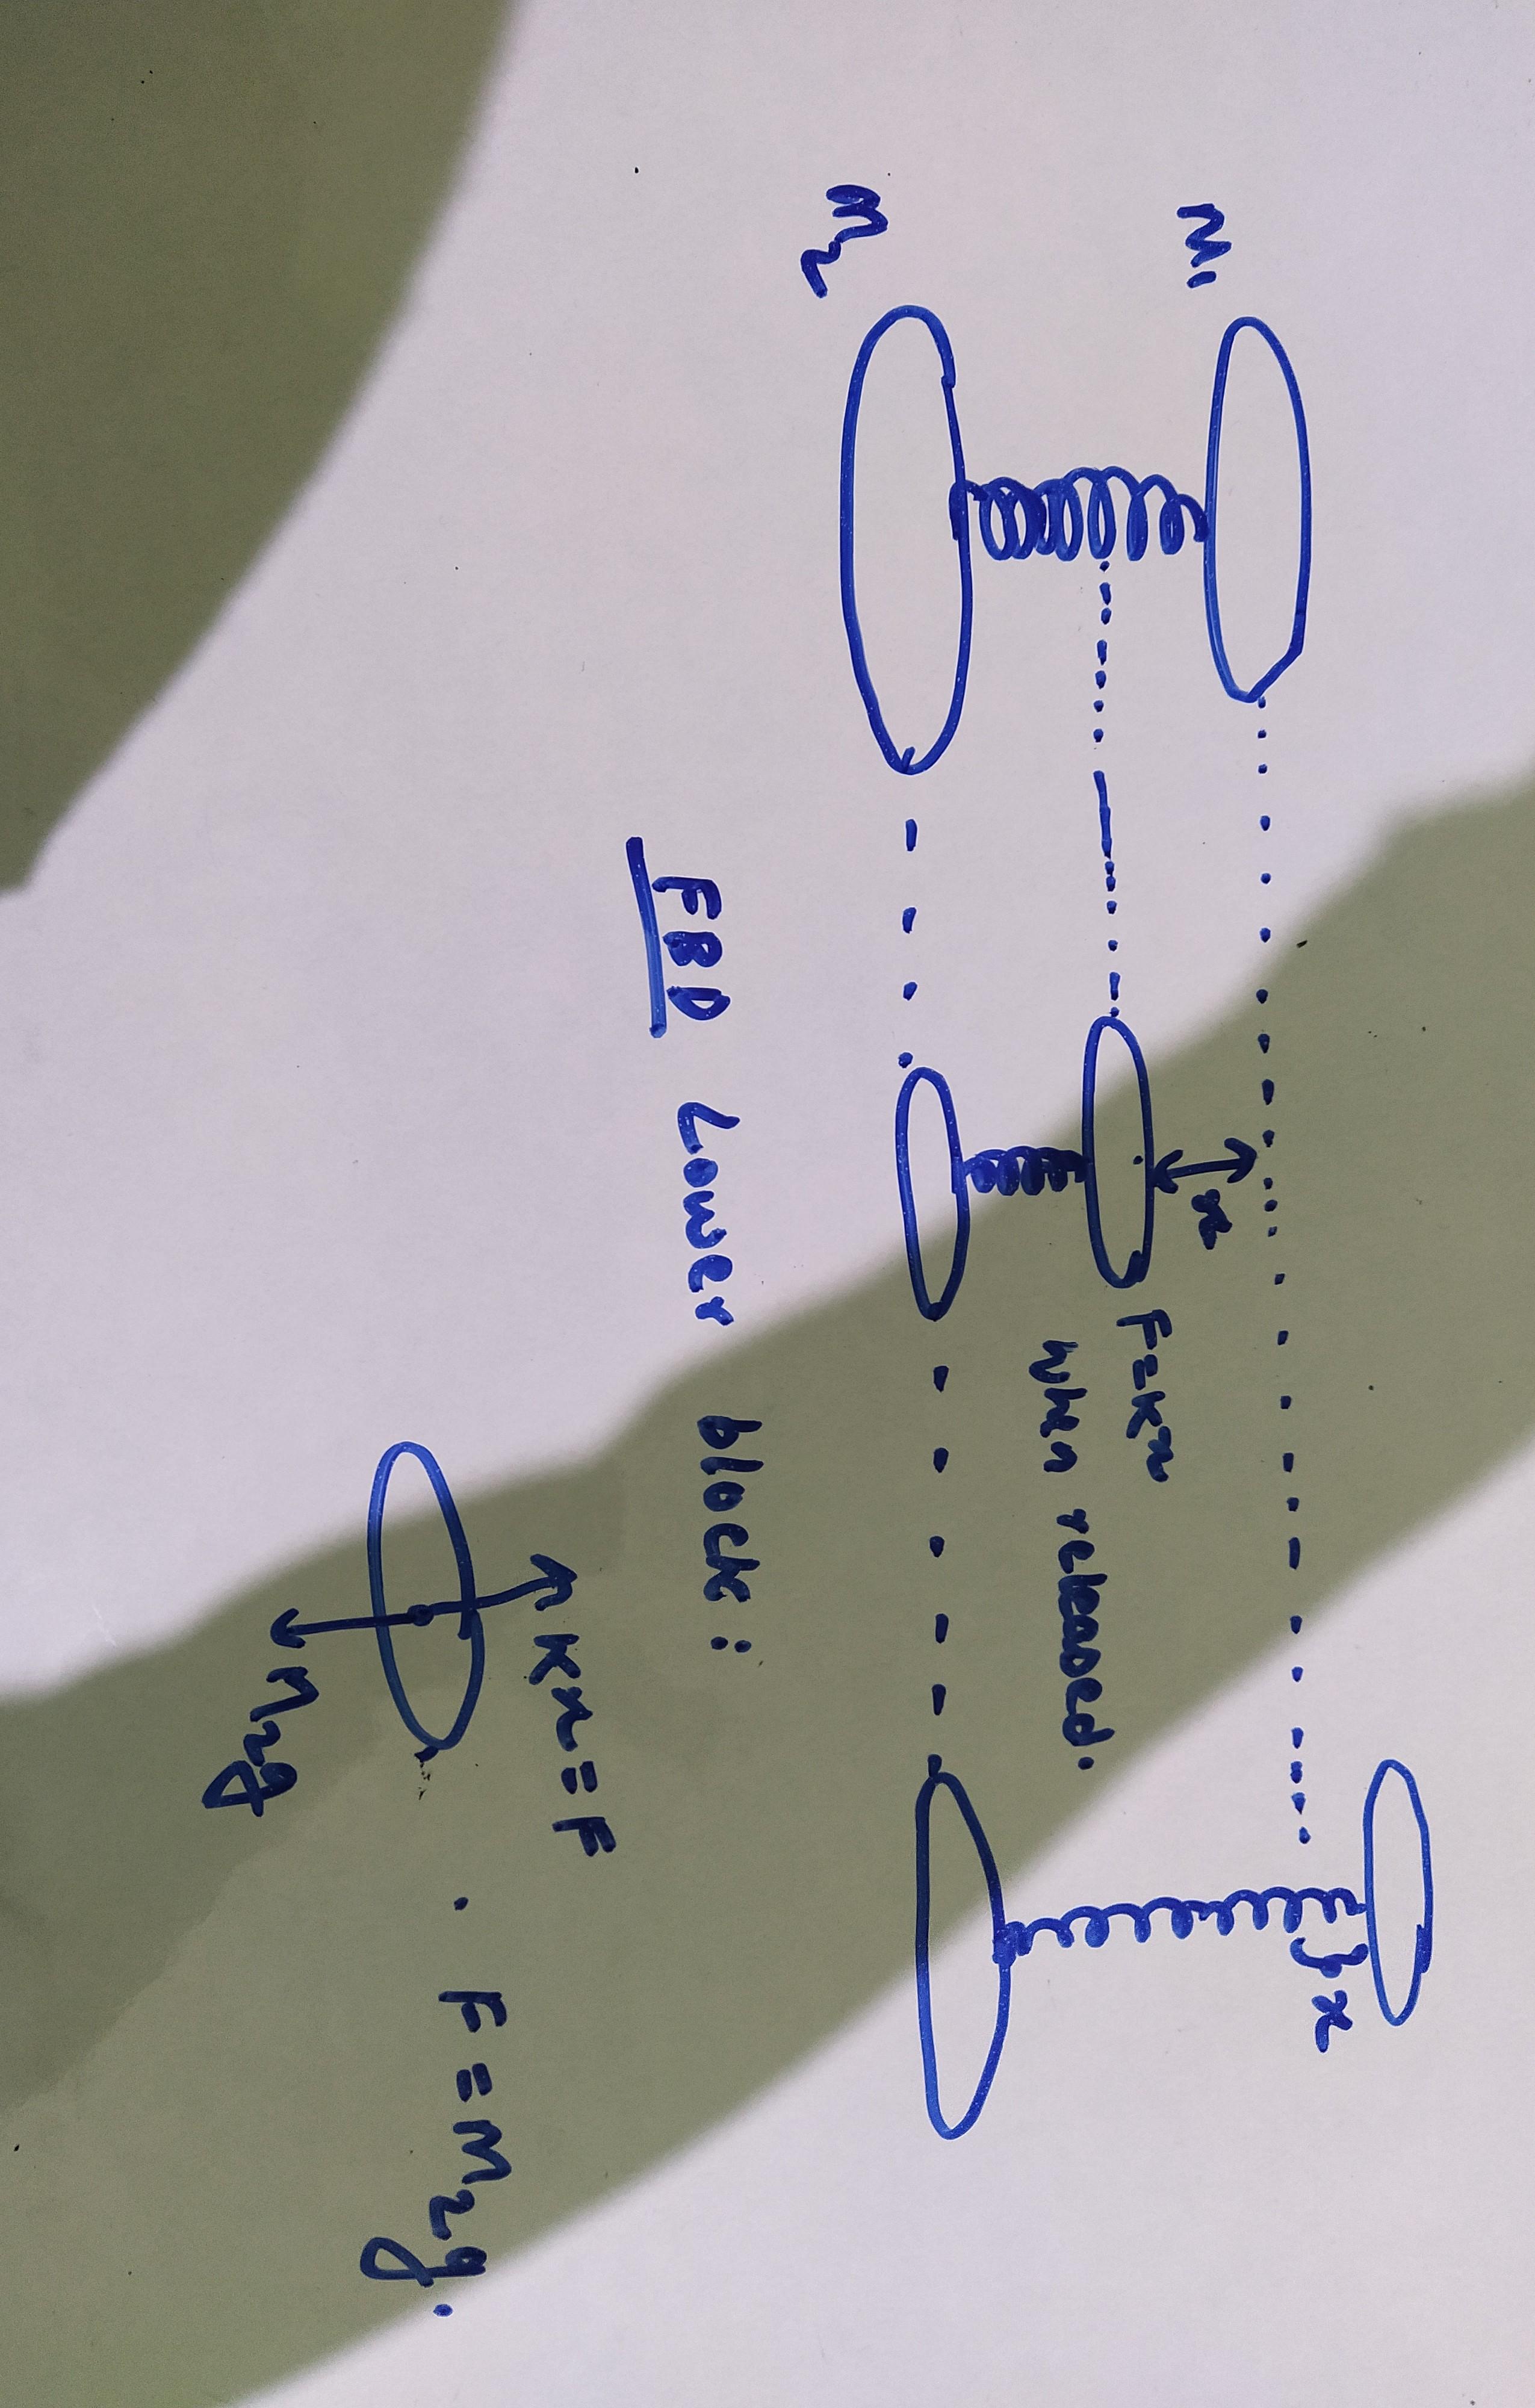 M₁
m₂
x
F=Kx
when released.
x
FBD Lower block:
Kx=F
m₂g
F=m₂g.